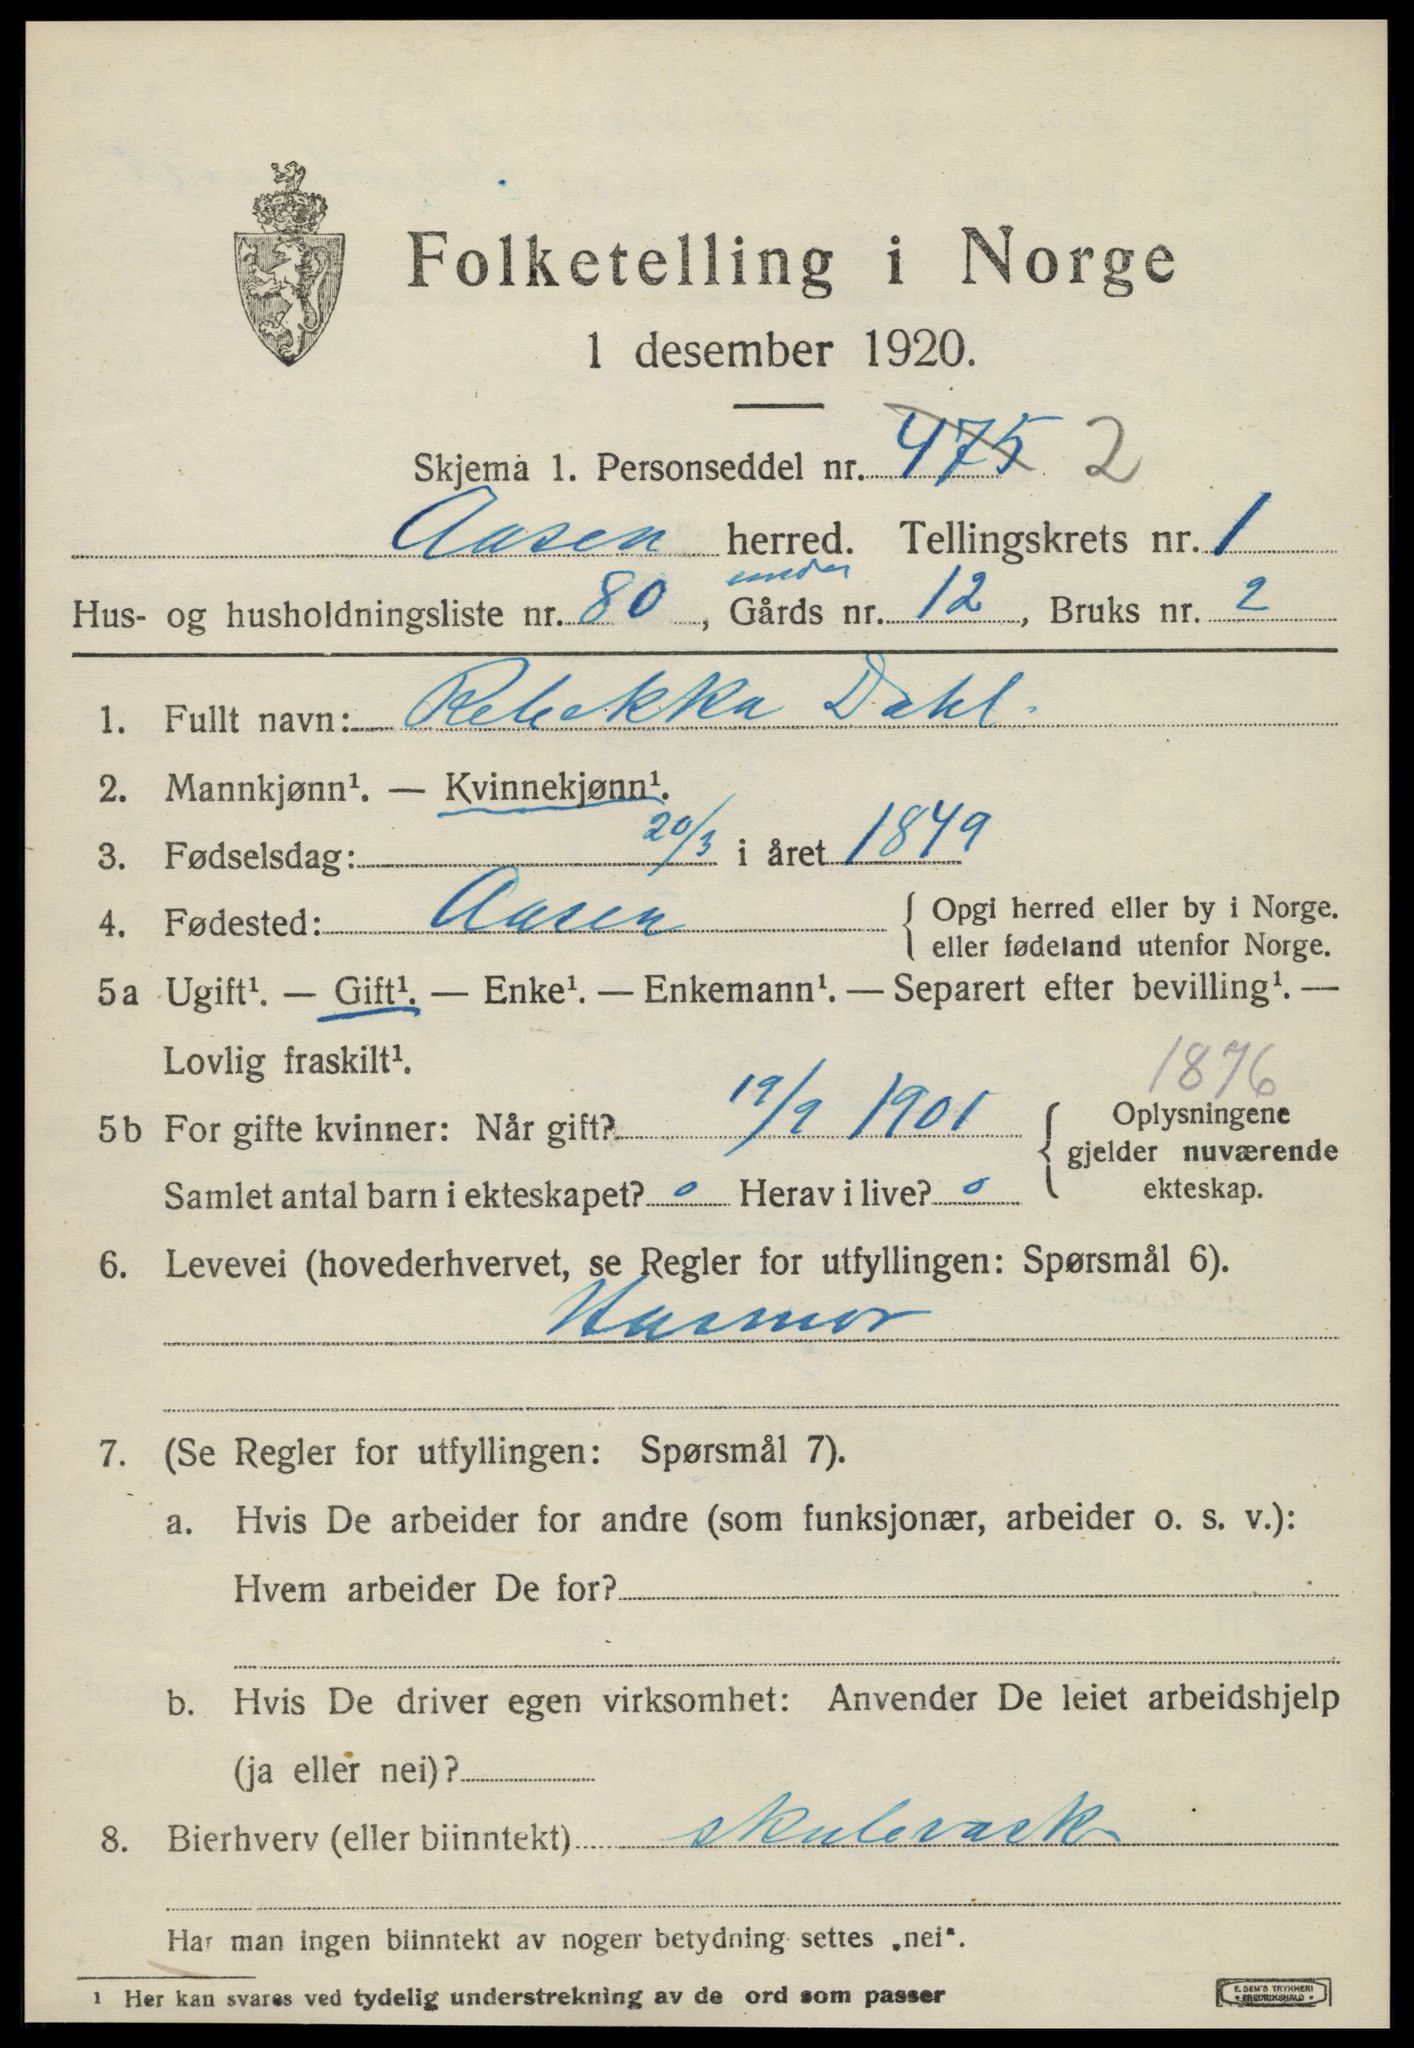 Folketelling i Norge
1 desember 1920.
Skjema 1. Personseddel nr. 475 2
Aasen herred. Tellingskrets nr. 1
under
Hus- og husholdningsliste nr. 80, Gårds nr. 12, Bruks nr. 2
1. Fullt navn: Rebekka Dahl.
2. Mannkjønn¹. — Kvinnekjønn¹.
3. Fødselsdag: 20/3 i året 1849
4. Fødested: Aasen { Opgi herred eller by i Norge.
eller fødeland utenfor Norge.
5a Ugift¹. — Gift¹. — Enke¹. — Enkemann¹. — Separert efter bevilling¹. —
Lovlig fraskilt¹.
1876
5b For gifte kvinner: Når gift? 19/9 1901 { Oplysningene
gjelder nuværende
Samlet antal barn i ekteskapet? 0 Herav i live? 0 ekteskap.
6. Levevei (hovederhvervet, se Regler for utfyllingen: Spørsmål 6).
Husmor
7. (Se Regler for utfyllingen: Spørsmål 7).
a. Hvis De arbeider for andre (som funksjonær, arbeider o. s. v.):
Hvem arbeider De for?
b. Hvis De driver egen virksomhet: Anvender De leiet arbeidshjelp
(ja eller nei)?
8. Bierhverv (eller biinntekt) skulevask
Har man ingen biinntekt av nogen betydning settes „nei“.
¹ Her kan svares ved tydelig understrekning av de ord som passer
E. SEM'S TRYKKERI
FREDRIKSHALD